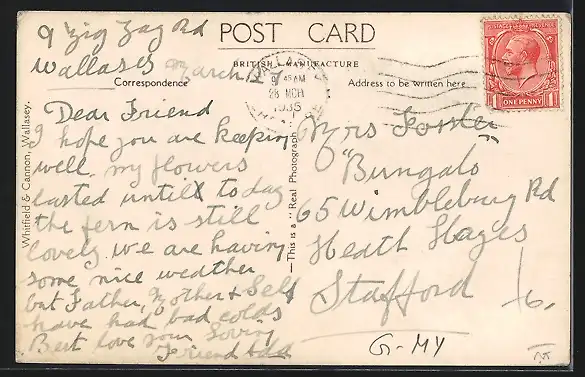 9 Zig Zag Rd
POST CARD
Wallasey March 28
BRITISH MANUFACTURE
Correspondence
Address to be written here
WALLASEY
9 45 AM
28 MCH
1935
ONE PENNY
Dear Friend
I hope you are keeping
well. my flowers
lasted untill today
the fern is still
lovely we are having
some nice weather
but Father, Mother & Self
have had bad colds
Best love your loving
Friend
Whitfield & Cannon, Wallasey.
This is a "Real Photograph
Mrs Foster
"Bungalo
65 Wimbleburg Rd
Heath Hayes
Stafford
G-MY